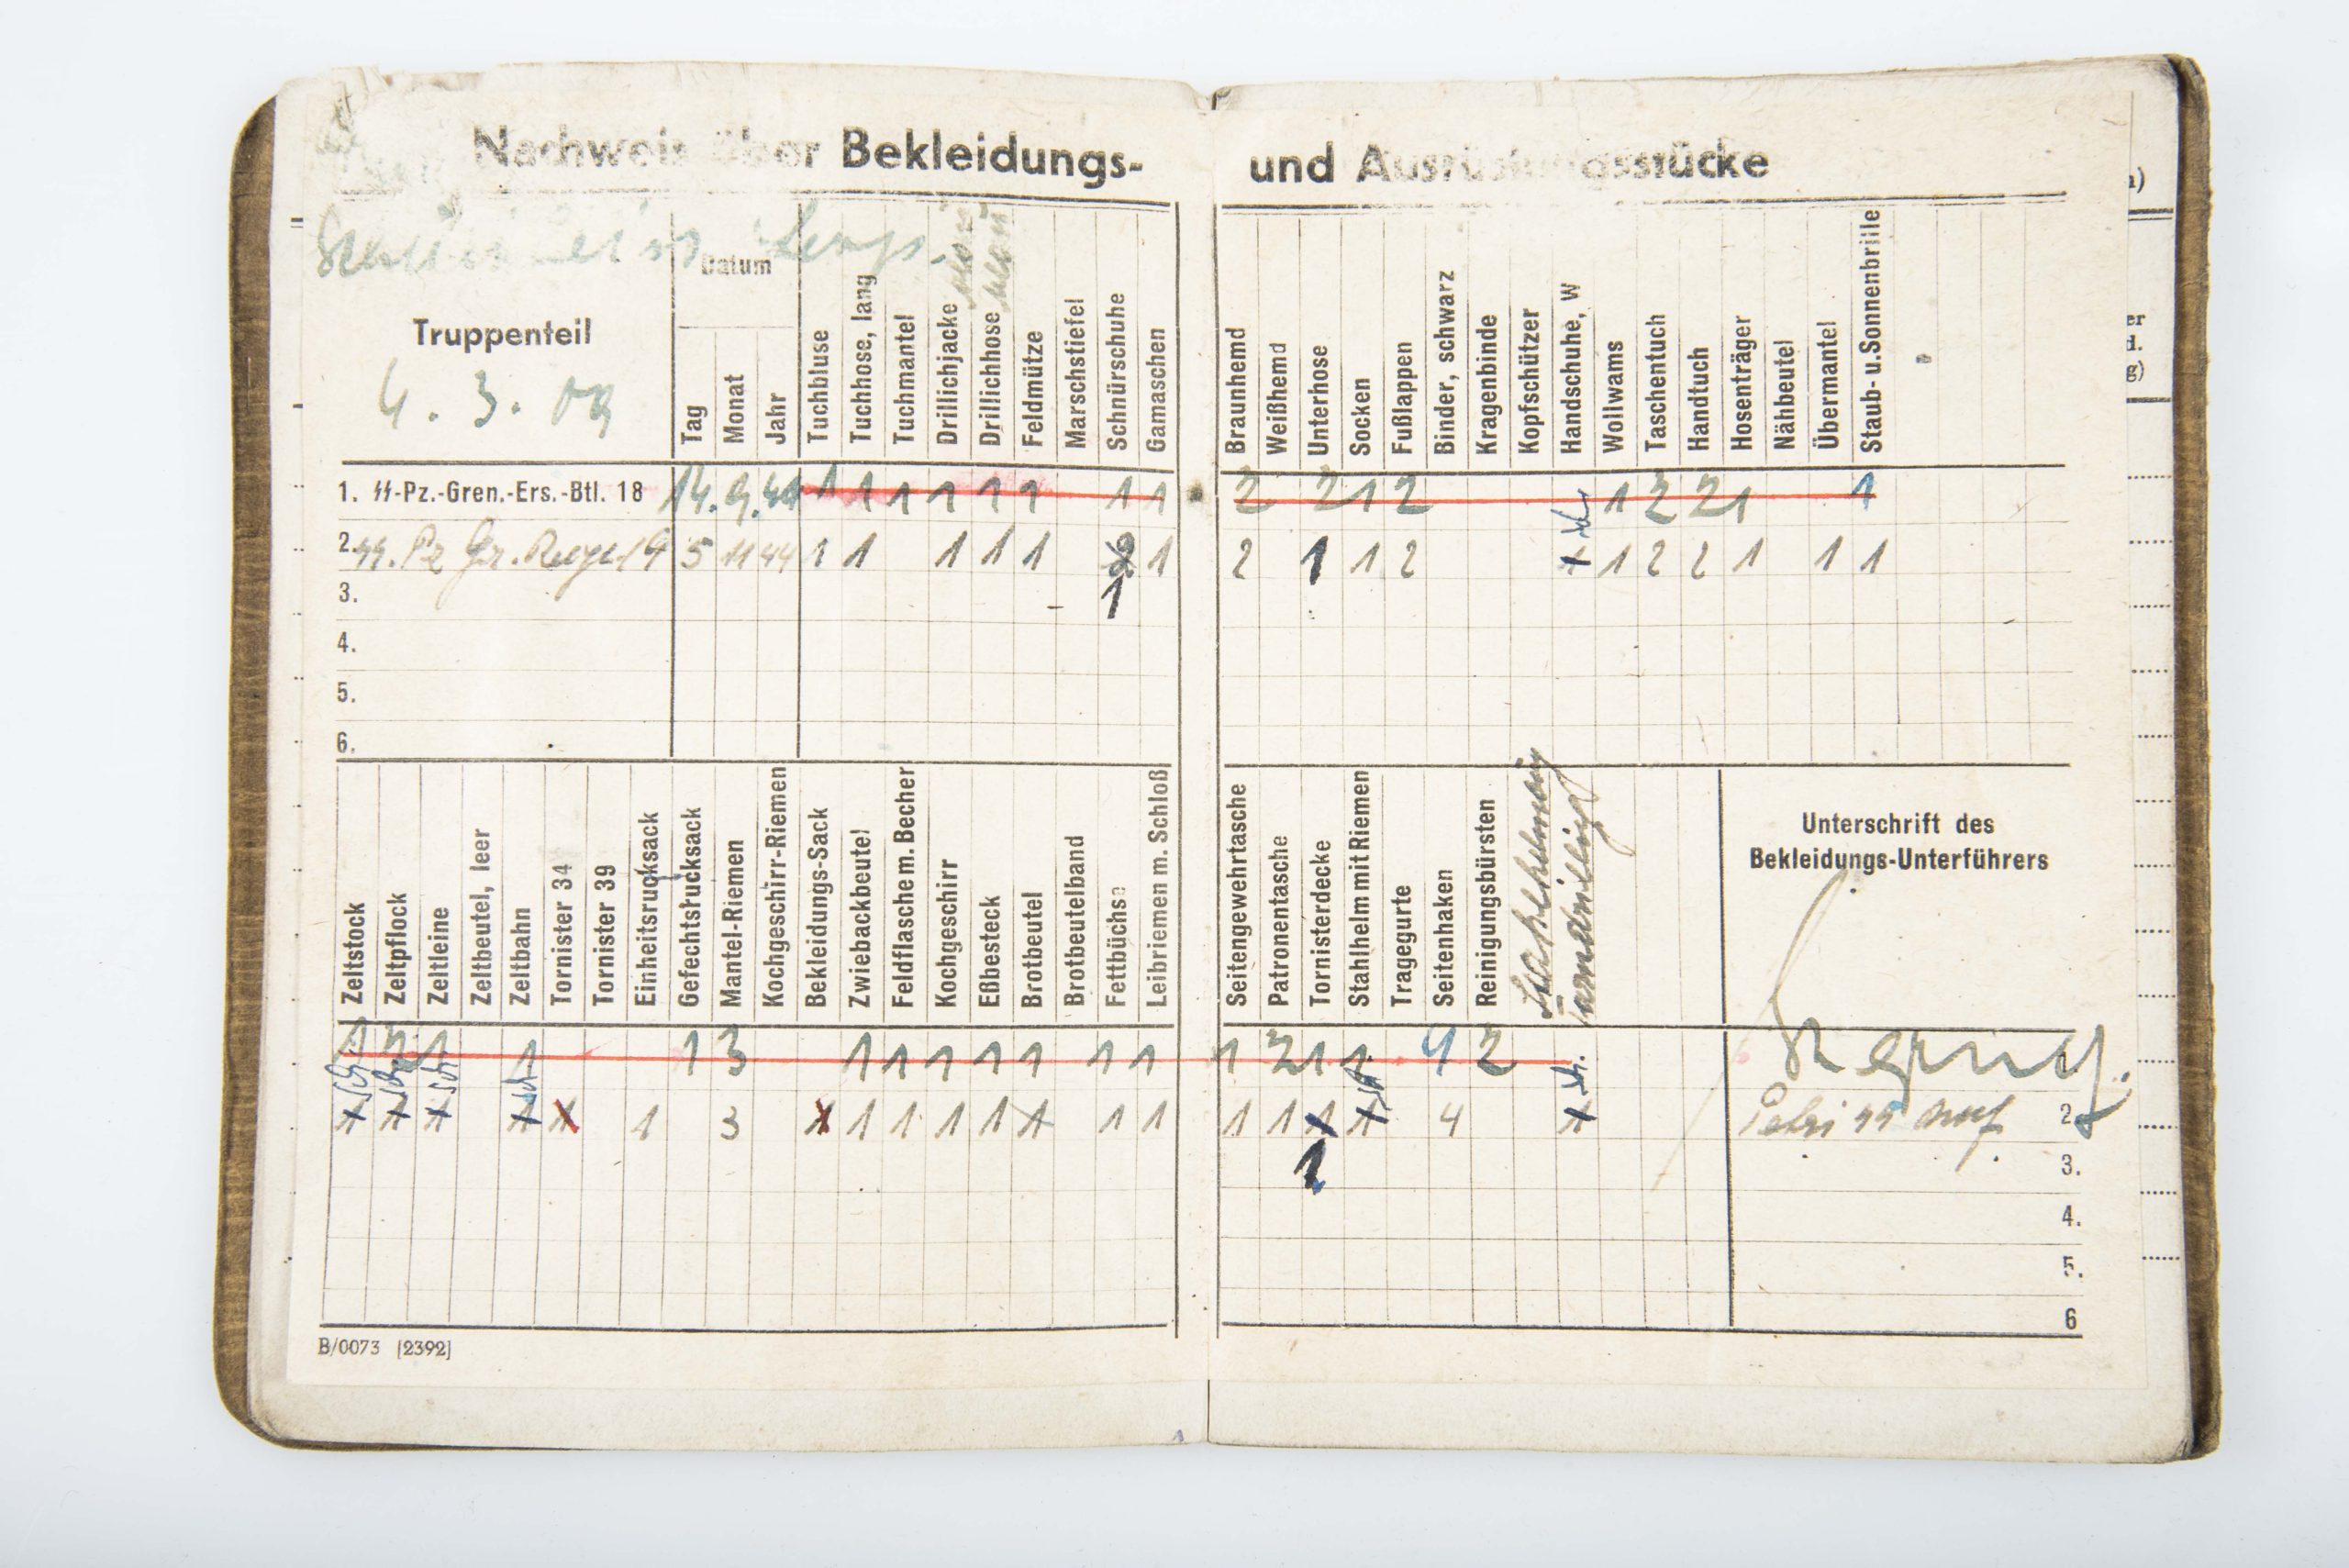 Nachweis über Bekleidungs- und Ausrüstungsstücke
Datum
Truppenteil
4. 3. 09
Tag
Monat
Jahr
Tuchbluse
Tuchhose, lang
Tuchmantel
Drillichjacke
Drillichhose
Feldmütze
Marschstiefel
Schnürschuhe
Gamaschen
Braunhemd
Weißhemd
Unterhose
Socken
Fußlappen
Binder, schwarz
Kragenbinde
Kopfschützer
Handschuhe, W
Wollwams
Taschentuch
Handtuch
Hosenträger
Nähbeutel
Übermantel
Staub- u. Sonnenbrille
1. ᛋᛋ-Pz.-Gren.-Ers.-Btl. 18 14. 9. 44 1 1 1 1 1 1 1 1 2 2 1 2 1 2 2 1 1
2. ᛋᛋ. Pz Gr. 5 11 44 1 1 1 1 1 1 2 1 1 2 1 2 2 1 1 1
3. 1
4.
5.
6.
Zeltstock
Zeltpflock
Zeltleine
Zeltbeutel, leer
Zeltbahn
Tornister 34
Tornister 39
Einheitsrucksack
Gefechtsrucksack
Mantel-Riemen
Kochgeschirr-Riemen
Bekleidungs-Sack
Zwiebackbeutel
Feldflasche m. Becher
Kochgeschirr
Eßbesteck
Brotbeutel
Brotbeutelband
Fettbüchse
Leibriemen m. Schloß
Seitengewehrtasche
Patronentasche
Tornisterdecke
Stahlhelm mit Riemen
Tragegurte
Seitenhaken
Reinigungsbürsten
Unterschrift des
Bekleidungs-Unterführers
1 2 1 1 1 3 1 1 1 1 1 1 1 1 2 1 1 4 2
1 3 1 1 1 1 1 1 1 1 4 2
1 3.
4.
5.
6
B/0073 [2392]